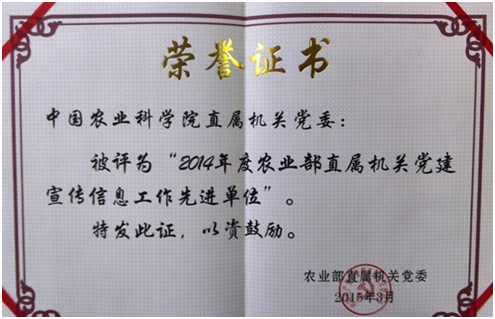 荣誉证书
中国农业科学院直属机关党委：
被评为“2014年度农业部直属机关党建
宣传信息工作先进单位”。
特发此证，以资鼓励。
农业部直属机关党委
2015年3月